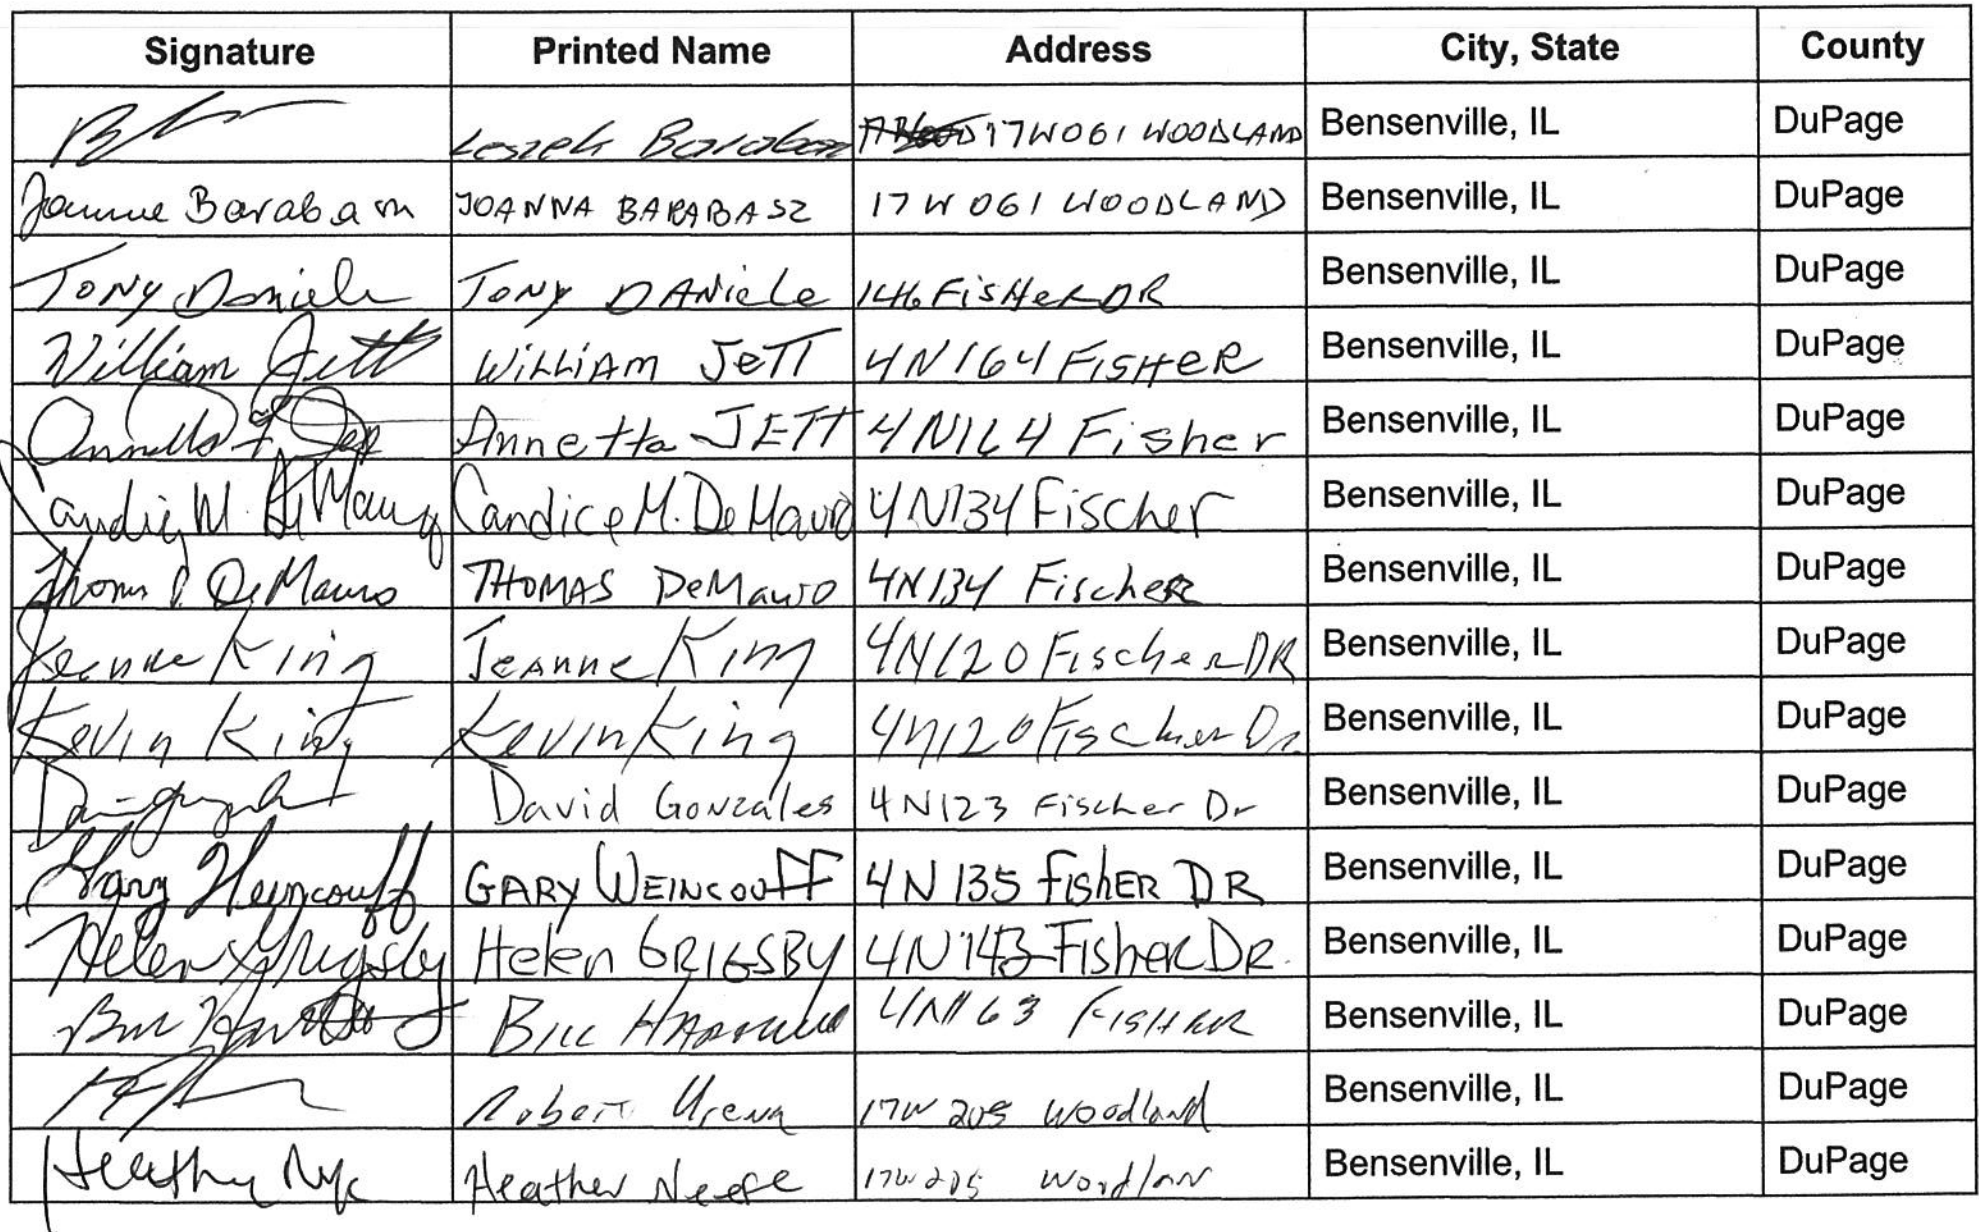 Signature Printed Name Address City, State County
Leszek 17W061 WOODLAND Bensenville, IL DuPage
Joanne Barabasz JOANNA BARABASZ 17W061 WOODLAND Bensenville, IL DuPage
Tony Daniele TONY DANIELE 146 FISHER DR Bensenville, IL DuPage
William Jett WILLIAM JETT 4N164 FISHER Bensenville, IL DuPage
Annetta JETT 4N164 Fisher Bensenville, IL DuPage
Candice M. DeMauro Candice M. DeMauro 4N134 Fischer Bensenville, IL DuPage
Thomas P. DeMauro THOMAS DeMauro 4N134 Fischer Bensenville, IL DuPage
Jeanne King Jeanne King 4N120 Fischer DR Bensenville, IL DuPage
Kevin King Kevin King 4N120 Fischer Dr. Bensenville, IL DuPage
David Gonzales 4N123 Fischer Dr Bensenville, IL DuPage
Gary Weincouff GARY WEINCOUFF 4N135 FISHER DR Bensenville, IL DuPage
Helen Grigsby Helen GRIGSBY 4N143 Fisher DR. Bensenville, IL DuPage
Bill 4N163 FISHER Bensenville, IL DuPage
Robert Urena 17W205 Woodland Bensenville, IL DuPage
Heather Neefe 17W205 Bensenville, IL DuPage